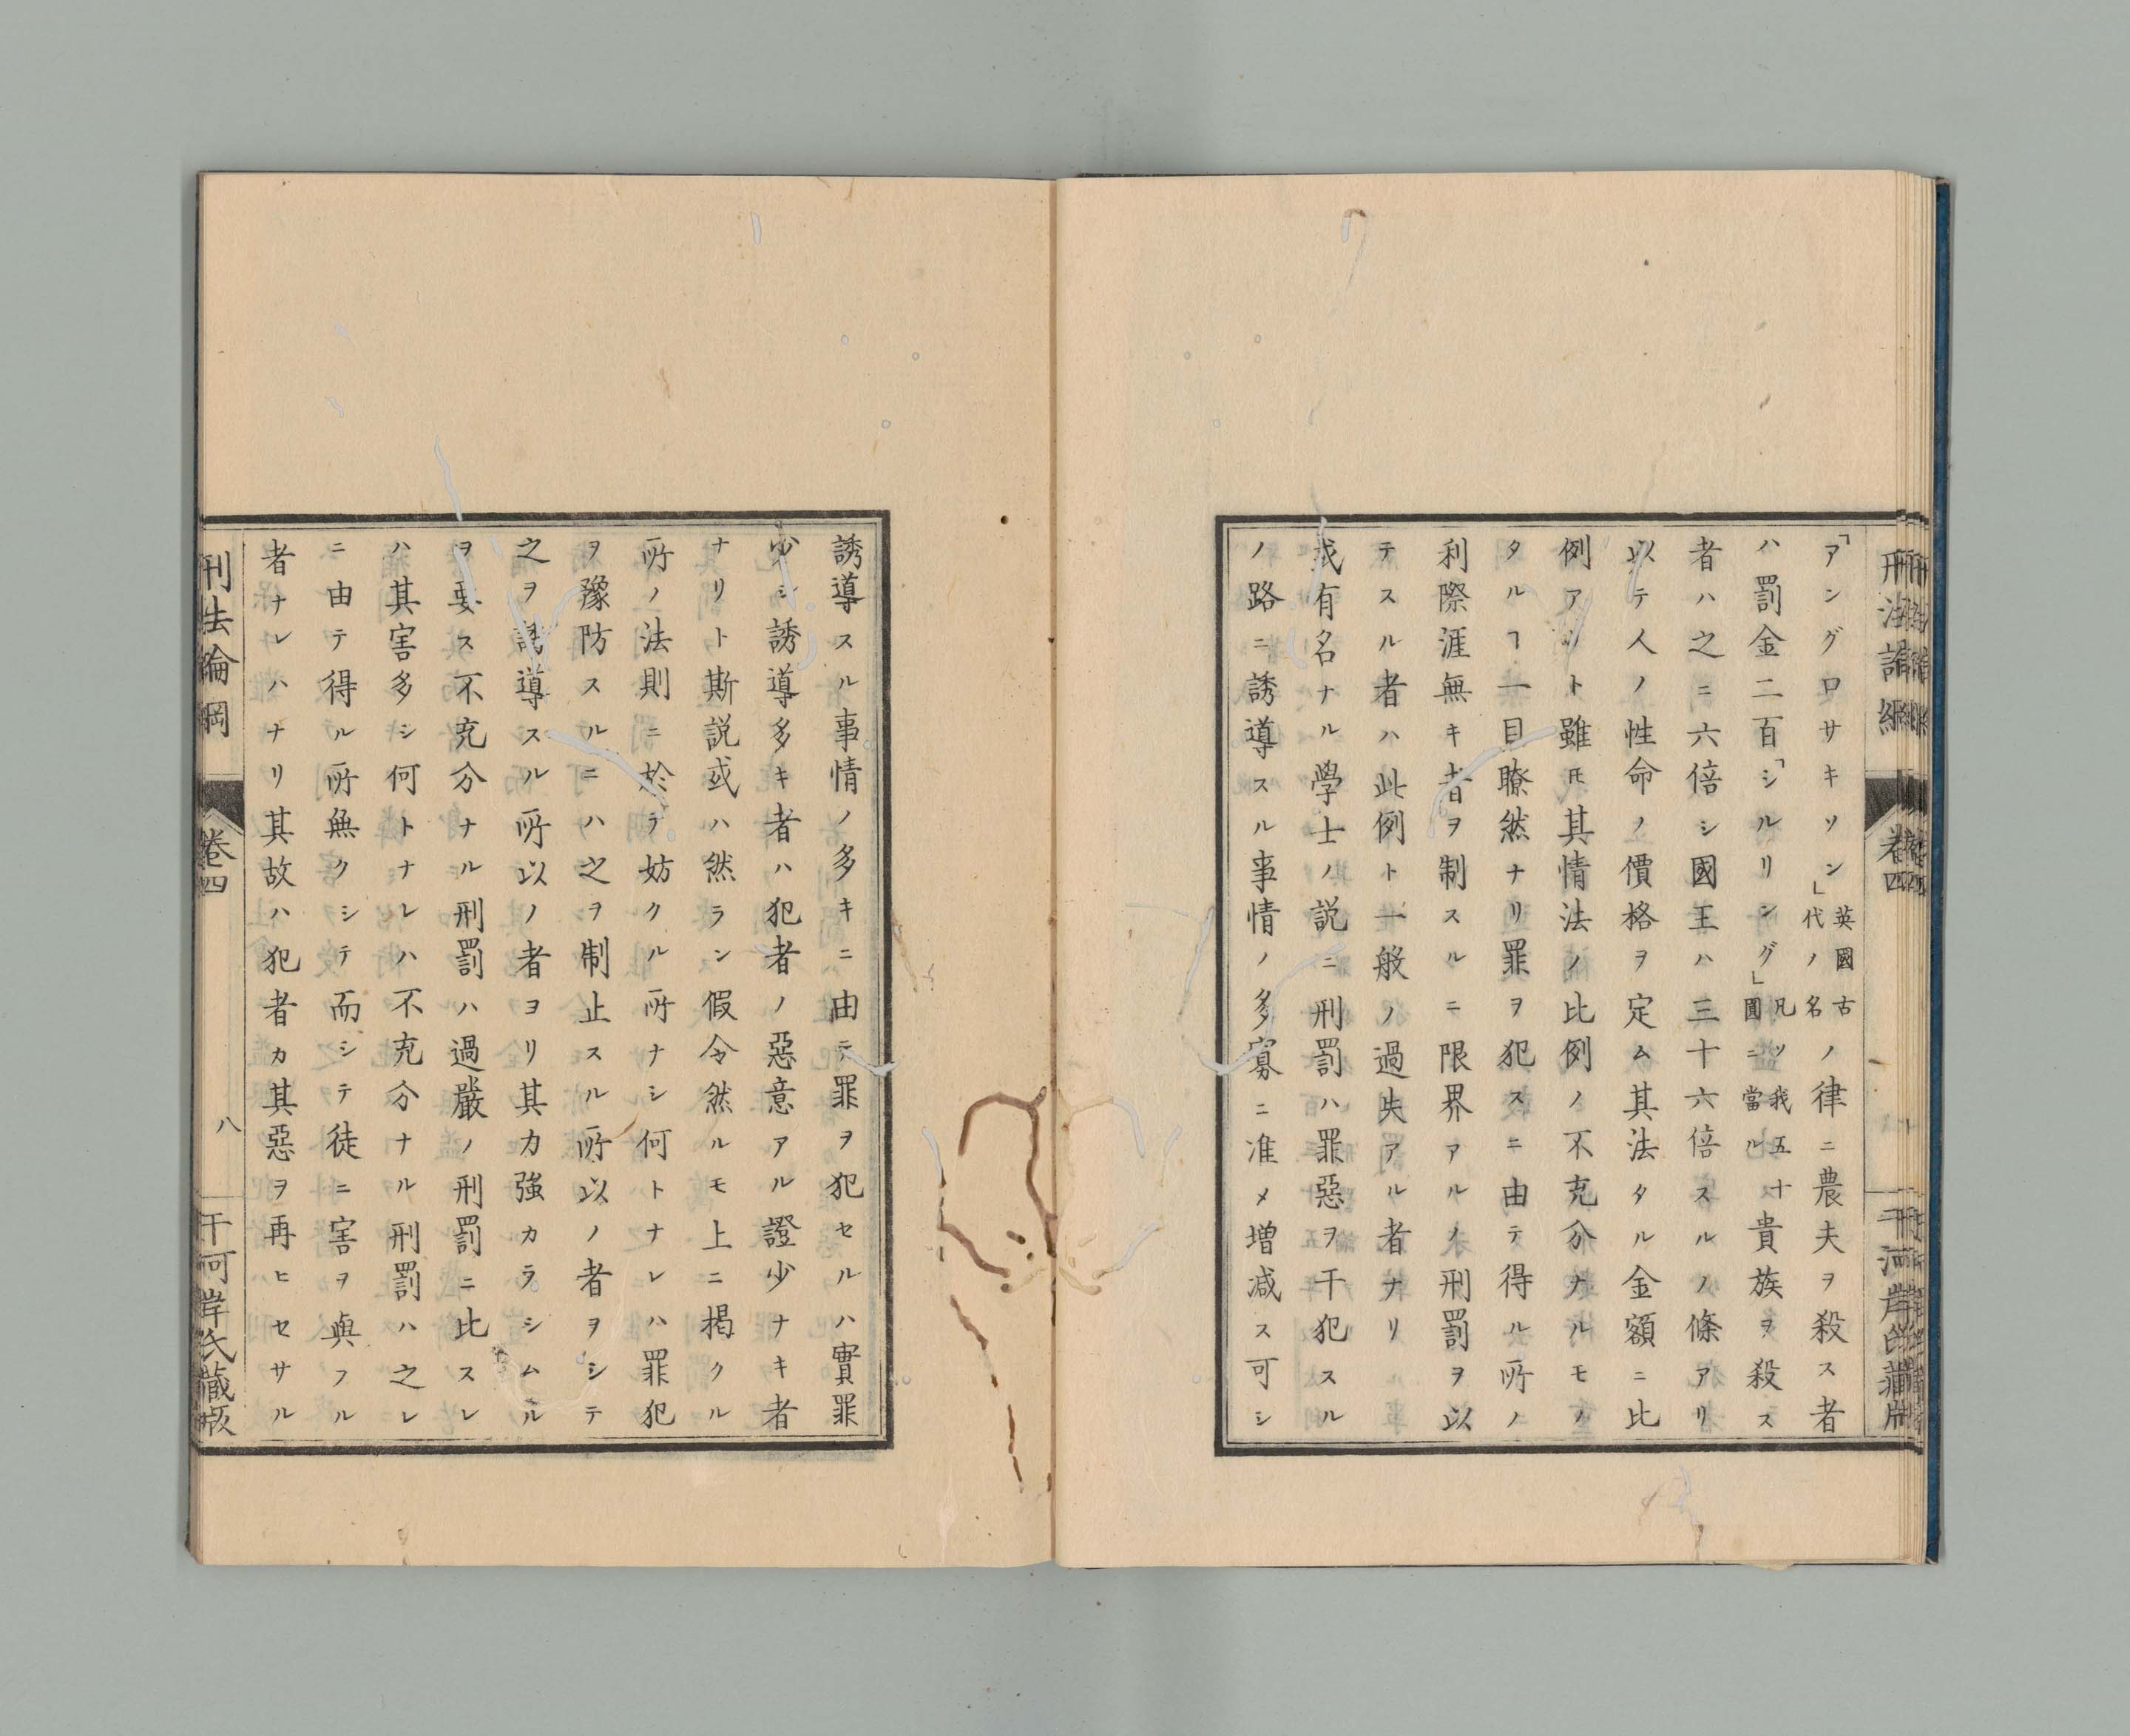 「アングロサキソン」英國古代ノ名ノ律ニ農夫ヲ殺ス者
ハ罰金二百「シルリング」凡ソ我五十圓ニ當ル貴族ヲ殺ス
者ハ之ニ六倍シ國王ハ三十六倍スルノ條アリ
以テ人ノ性命ノ價格ヲ定ム其法タル金額ニ比
例アリト雖𪜈其情法ノ比例ノ不充分ナルモノ
タルヿ一目瞭然ナリ罪ヲ犯スニ由テ得ル所ノ
利際涯無キ者ヲ制スルニ限界アルノ刑罰ヲ以
テスル者ハ此例ト一般ノ過失アル者ナリ
或有名ナル學士ノ説ニ刑罰ハ罪惡ヲ干犯スル
ノ路ニ誘導スル事情ノ多寡ニ准メ増減ス可シ
刑法論綱
卷四
誘導スル事情ノ多キニ由テ罪ヲ犯セルハ實罪
少シ誘導多キ者ハ犯者ノ惡意アル證少ナキ者
ナリト斯説或ハ然ラン假令然ルモ上ニ掲クル
所ノ法則ニ於テ妨クル所ナシ何トナレハ罪犯
ヲ豫防スルニハ之ヲ制止スル所以ノ者ヲシテ
之ヲ誘導スル所以ノ者ヨリ其力強カラシムル
ヲ要ス不充分ナル刑罰ハ過嚴ノ刑罰ニ比スレ
ハ其害多シ何トナレハ不充分ナル刑罰ハ之レ
ニ由テ得ル所無クシテ而シテ徒ニ害ヲ與フル
者ナレハナリ其故ハ犯者カ其惡ヲ再ヒセサル
刑法論綱
卷四
八
干河岸氏藏版